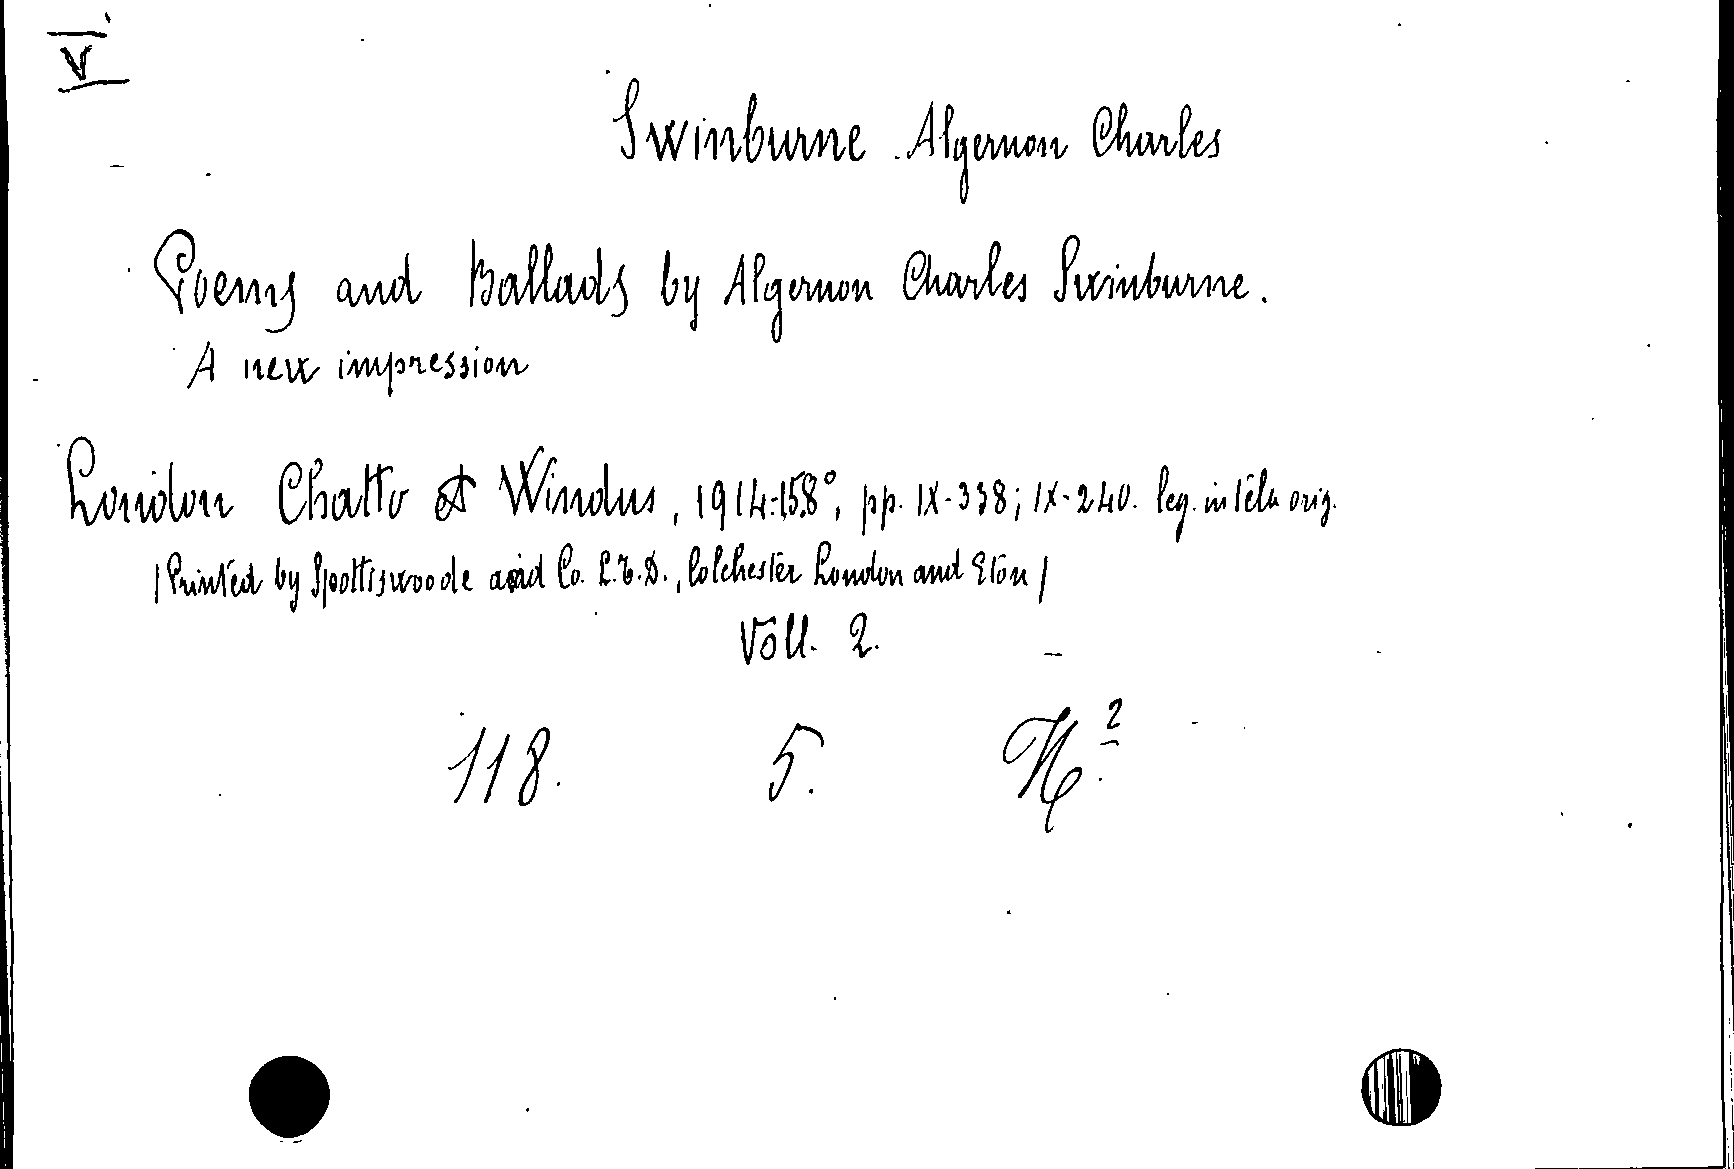 V
Swinburne Algernon Charles
Poems and Ballads by Algernon Charles Swinburne.
A new impression
London Chatto & Windus, 1914-15, 8°, pp. IX-338; IX-240. leg. in tela orig.
(Printed by Spottiswoode and Co. L.T.D., Colchester London and Eton)
Voll. 2.
118. 5.